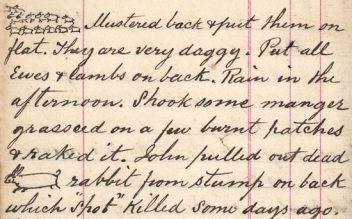 Mustered back & put them on
flat. They are very daggy. Put all
Ewes & lambs on back. Rain in the
afternoon. Shook some manger
grasseed on a few burnt patches
& raked it. John pulled out dead
rabbit from stump on back
which "Spot" Killed some days ago.